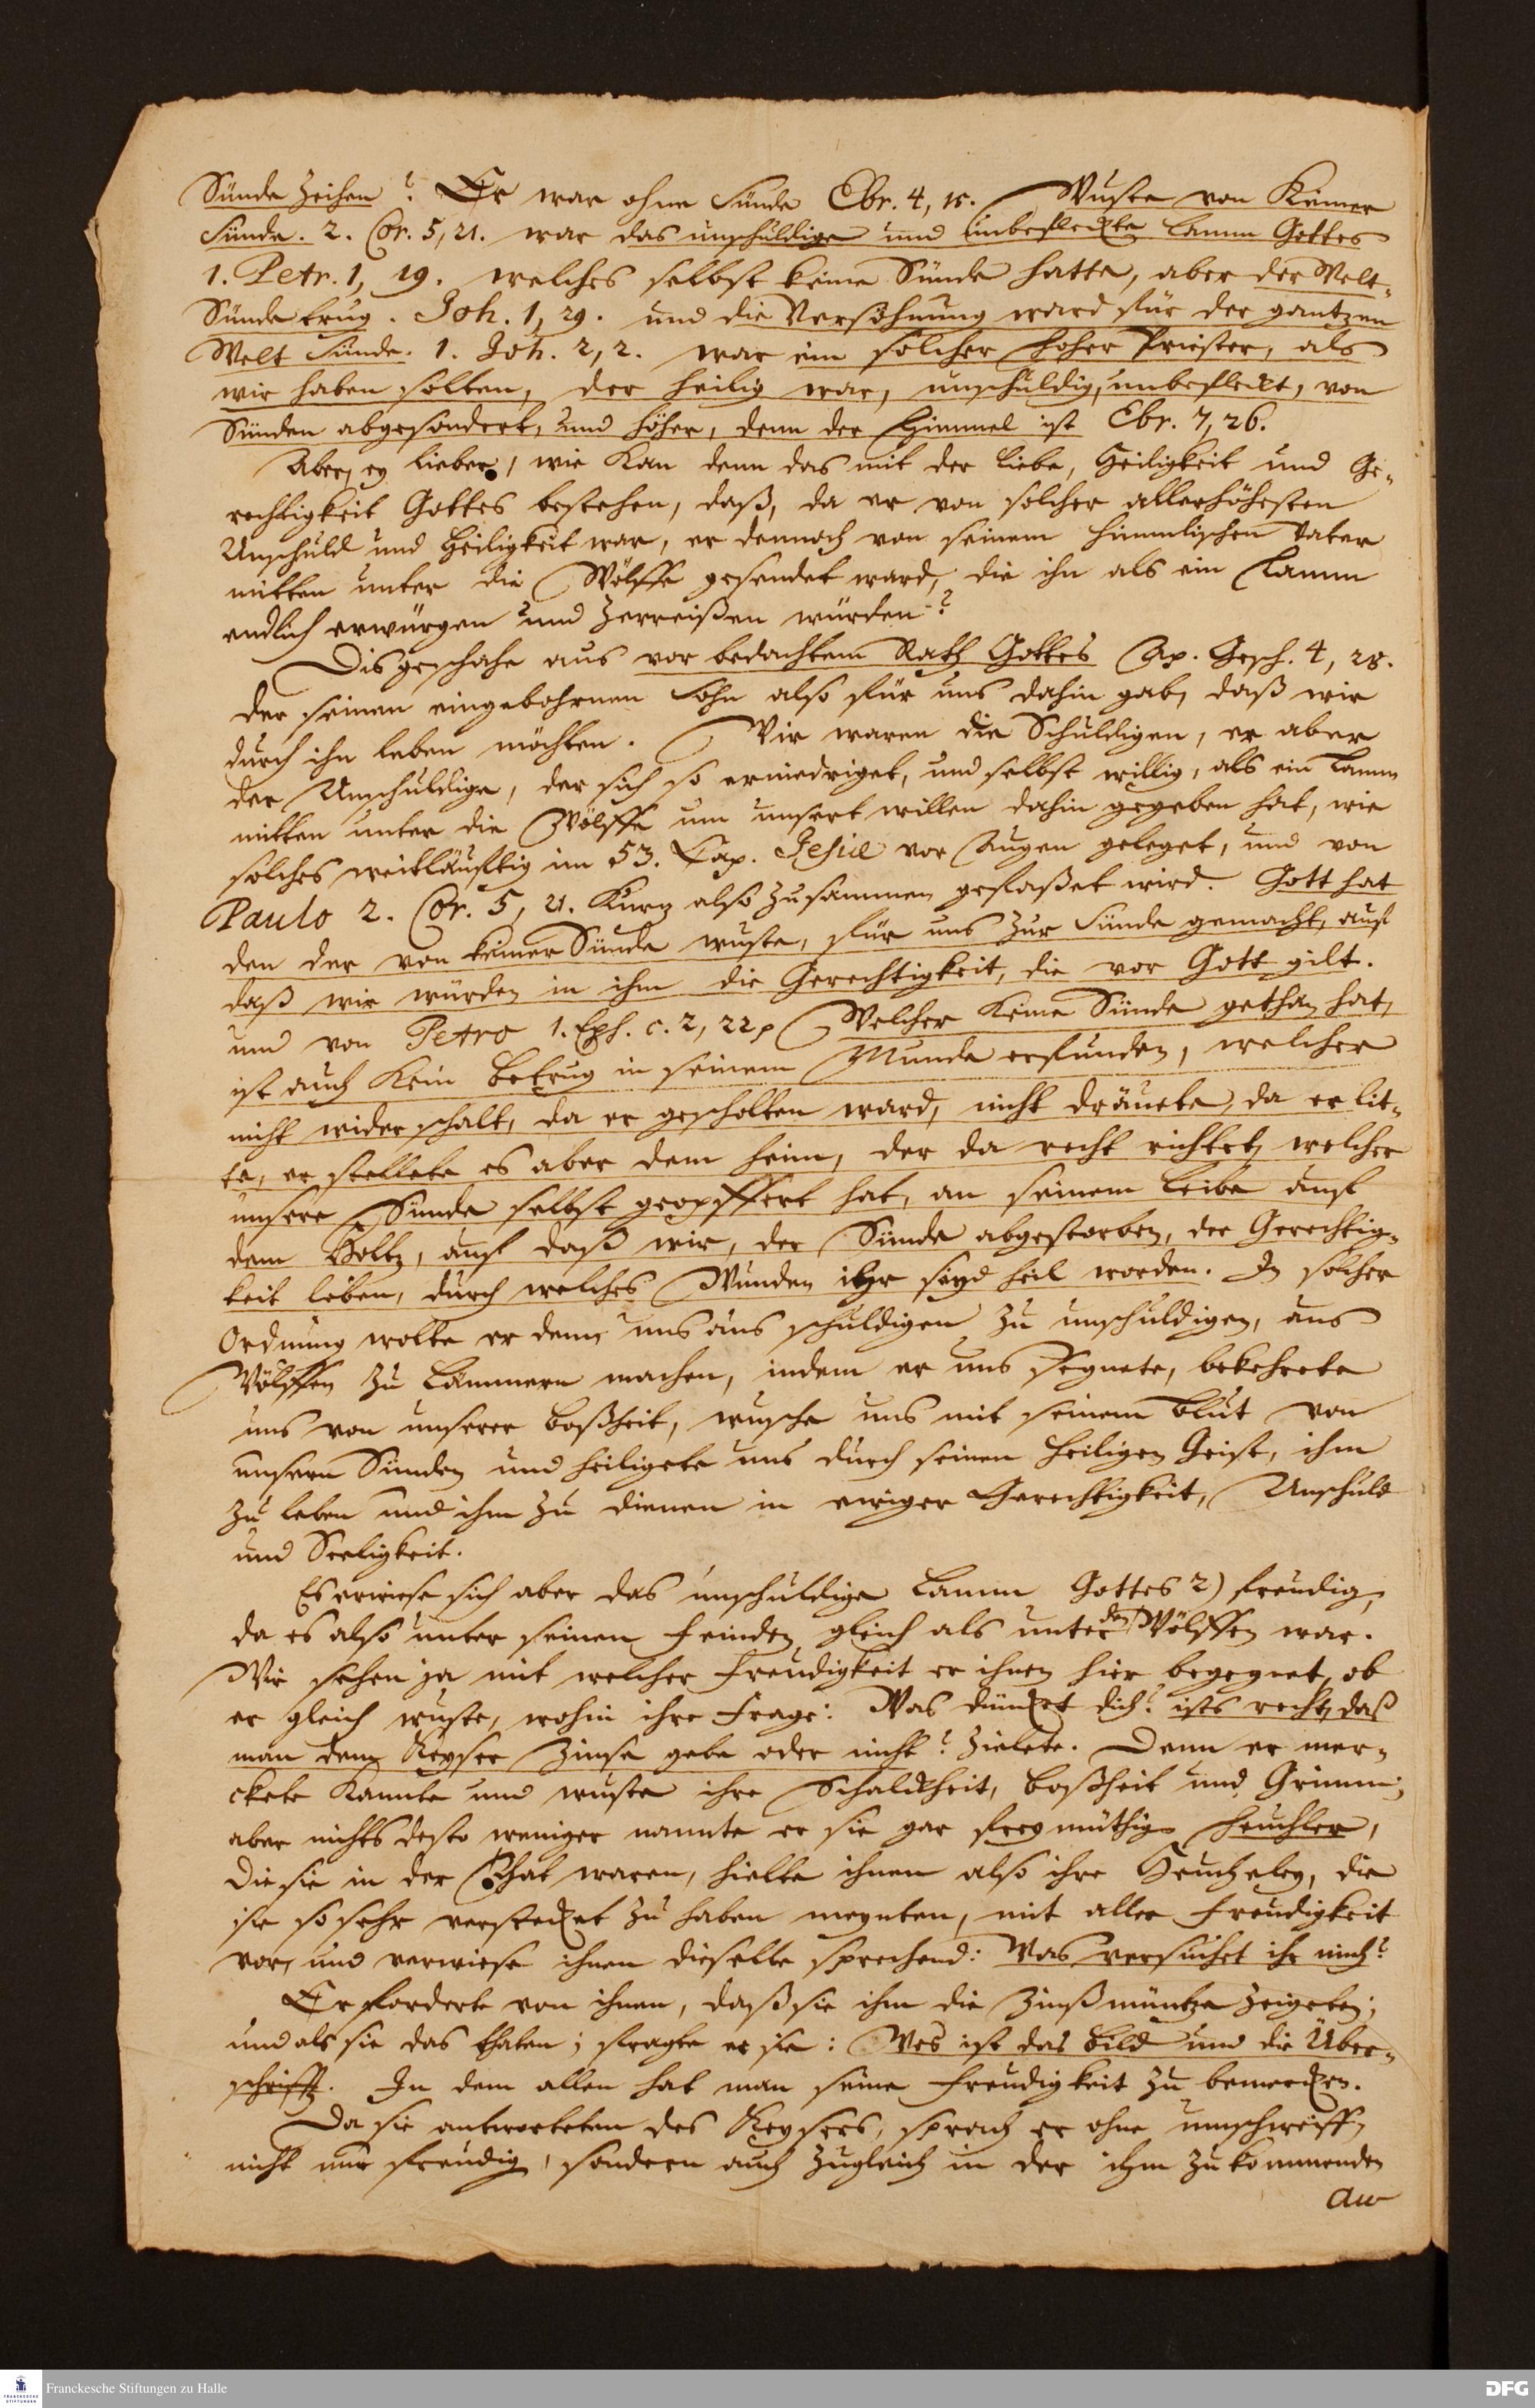 Sünde zeihen? Er war ohne Sünde Ebr. 4, 15. Wuste von Keiner
Sünde. 2. Cor. 5, 21. war das unschuldige und unbefleckte Lamm Gottes
1. Petr. 1, 19. welches selbst keine Sünde hatte, aber der Welt-
Sünde trug. Joh. 1, 29. und die Versöhnung ward für der gantzen
Welt Sünde. 1. Joh. 2, 2. war ein solcher Hoher Priester, als
wir haben solten, der heilig war, unschuldig, unbefleckt, von
Sünden abgesondert, und höher, denn der Himmel ist Ebr. 7, 26.
Aber, ey lieber, wie Kan denn das mit der Liebe, Heiligkeit und Ge-
rechtigkeit Gottes bestehen, daß, da er von solcher allerhöhesten
Unschuld und Heiligkeit war, er dennoch von seinem himmlischen Vater
mitten unter die Wölffe gesendet ward, die ihn als ein Lamm
endlich erwürgen und Zerreißen würden?
Dis geschahe aus vor bedachtem Rath Gottes Ap. Gesch. 4, 28.
der seinen eingebohrnen Sohn also für uns dahin gab, daß wir
durch ihn leben möchten. Wir waren die Schuldigen, er aber
der Unschuldige, der sich so erniedriget, und selbst willig, als ein Lamm
mitten unter die Wölffe um unsert willen dahin gegeben hat, wie
solches weitläufftig im 53. Cap. Jesiæ vor Augen geleget, und von
Paulo 2. Cor. 5, 21. Kurtz also zusammen gefaßet wird. Gott hat
den der von keiner Sünde wuste, für uns zur Sünde gemacht, auf
daß wir würden in ihm die Gerechtigkeit, die vor Gott gilt.
und von Petro 1. Eph. c. 2, 22, Welcher Keine Sünde gethan hat,
ist auch Kein Betrug in seinem Munde erfunden, welcher
nicht wider schalt, da er gescholten ward, nicht dräuete, da er lit-
te, er stellete es aber dem heim, der da recht richtet, welcher
unsere Sünde selbst geopffert hat, an seinem Leibe auf
dem Holtz, auf daß wir, der Sünde abgestorben, der Gerechtig-
keit leben, durch welches Wunden ihr seyd heil worden. In solcher
Ordnung wolte er denn uns aus schuldigen zu unschuldigen, aus
Wölffen zu Lämmern machen, indem er uns segnete, bekehrete
uns von unserer Boßheit, wusche uns mit seinem Blut von
unsern Sünden und heiligete uns durch seinen Heiligen Geist, ihm
zu leben und ihm zu dienen in ewiger Gerechtigkeit, Unschuld
und Seeligkeit.
Es erwiese sich aber das unschuldige Lamm Gottes 2) freudig,
da es also unter seinen Feinden, gleich als unter den Wölffen war.
Wir sehen ja mit welcher Freudigkeit er ihnen hier begegnet, ob
er gleich wuste, wohin ihre Frage: Was düncket dich? ists recht, daß
man dem Keyser Zinse gebe oder nicht? zielete. Denn er mer-
ckete Kannte und wuste ihre Schalckheit, Boßheit und Grimm;
aber nichts desto weniger nannte er sie gar freymüthig Heuchler,
die sie in der That waren, hielte ihnen also ihre Heucheley, die
sie so sehr verstecket zu haben meynten, mit aller Freudigkeit
vor, und verwiese ihnen dieselbe sprechend: Was versuchet ihr mich?
Er forderte von ihnen, daß sie ihm die Zinßmüntze zeigeten;
und als sie das thaten; fragte er sie: Wes ist das Bild und die Über-
schrifft. In dem allen hat man seine Freudigkeit zu bemercken.
Da sie antworteten des Keysers, sprach er ohne umschweiff,
nicht nur freudig, sondern auch zugleich in der ihm zukommenden
au
Franckesche Stiftungen zu Halle
DFG